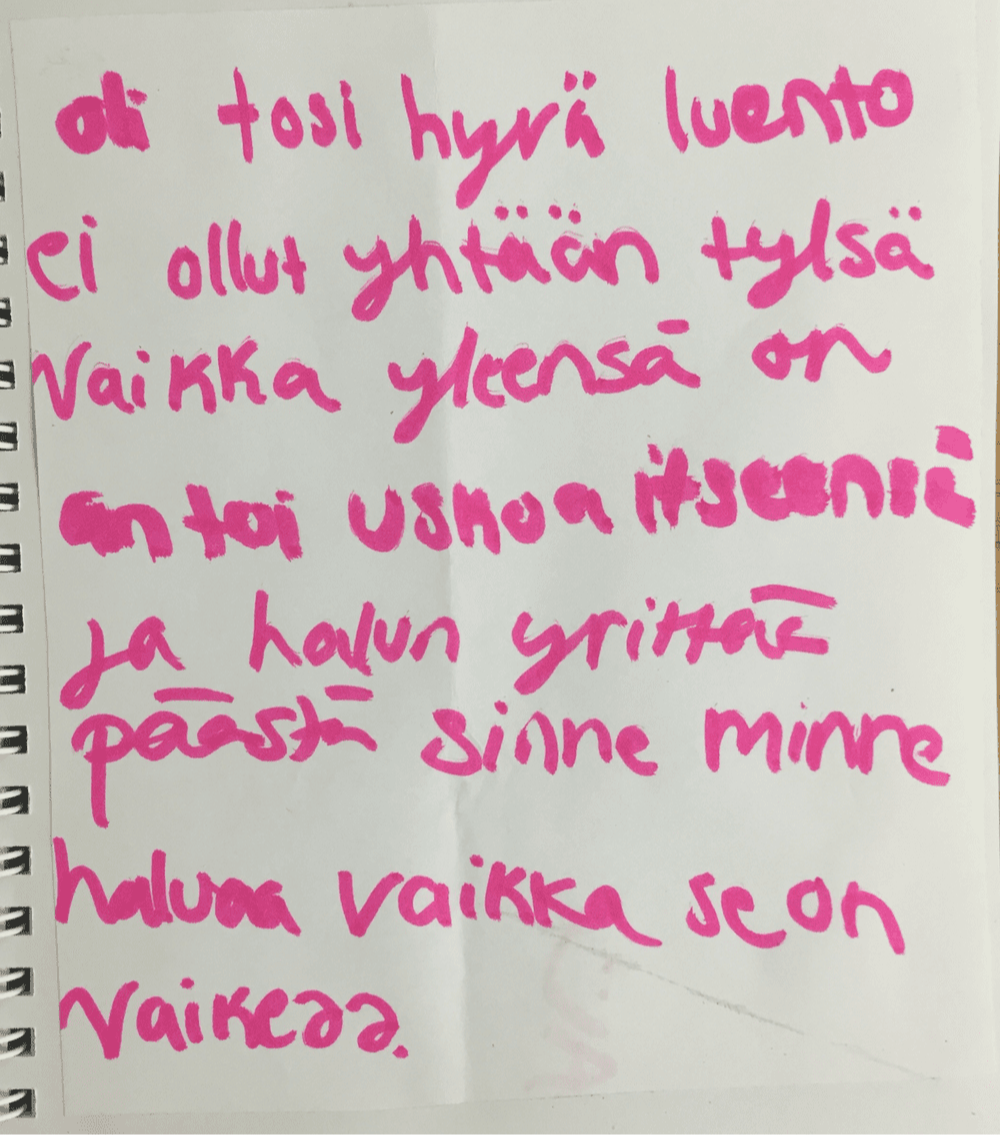 oli tosi hyvä luento
ei ollut yhtään tylsä
vaikka yleensä on
antoi uskoa itseensä
ja halun yrittää
päästä sinne minne
haluaa vaikka se on
vaikeaa.